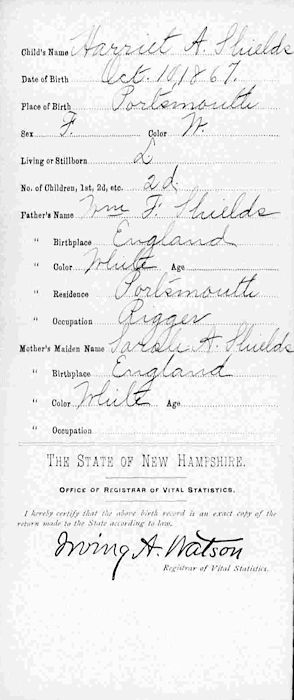 Child's Name Harriet A. Shields
Date of Birth Oct. 10, 1867.
Place of Birth Portsmouth
Sex F. Color W.
Living or Stillborn L
No. of Children, 1st, 2d, etc. 2d.
Father's Name Wm F. Shields
" Birthplace England
" Color White Age
" Residence Portsmouth
" Occupation Rigger
Mother's Maiden Name Sarah A. Shields
" Birthplace England
" Color White Age
" Occupation
THE STATE OF NEW HAMPSHIRE.
OFFICE OF REGISTRAR OF VITAL STATISTICS.
I hereby certify that the above birth record is an exact copy of the
return made to the State according to law.
Irving A. Watson
Registrar of Vital Statistics.